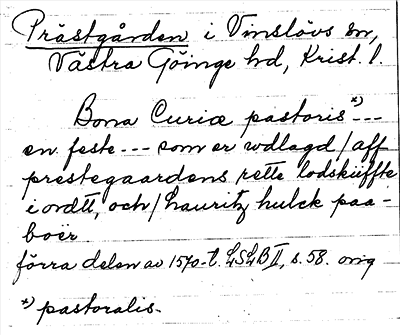 Prästgården i Vinslövs sn,
Västra Göinge hd, Krist. l.
Bona Curiæ pastoris *) ---
en feste --- som er wdlagd / aff
prestegaardens rette lodskiffte
i ordtt, och / Lauritz hulck paa-
boer.
förra delen av 1570-t. LSLB II, s. 58. orig
*) pastoralis.